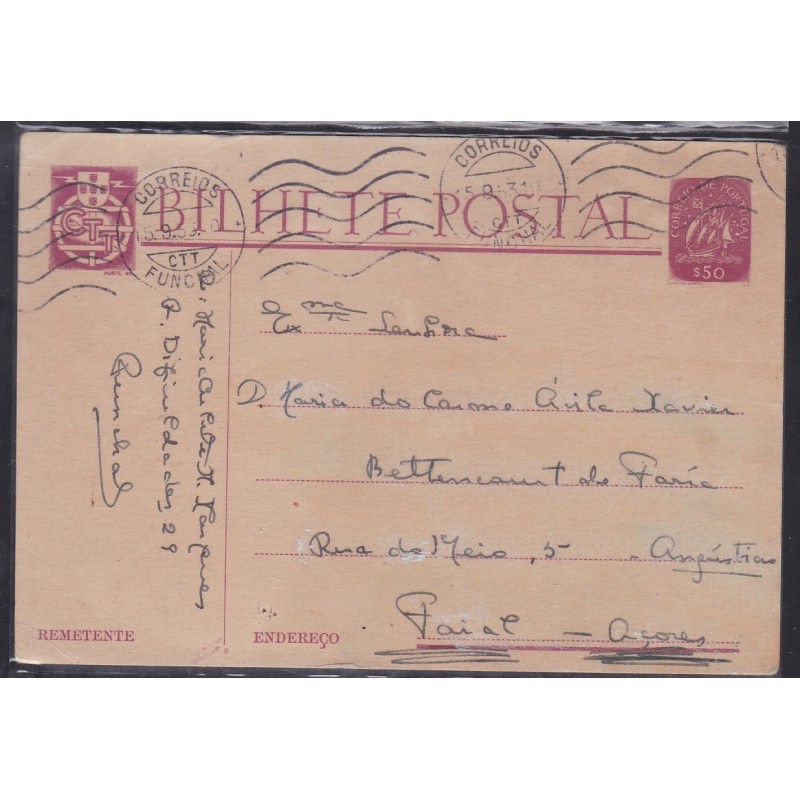 BILHETE POSTAL
CTT
CORREIOS
15.9.53.
CTT
FUNCHAL
CORREIOS
15.9.53.
CTT
FUNCHAL
CORREIO DE PORTUGAL
$50
Exma Senhora
D. Maria do Carmo Ávila Xavier
Bettencourt de Faria
Rua do Meio, 5 - Angústias
Faial - Açores
ENDEREÇO
REMETENTE
R. Dificuldades, 29
Funchal